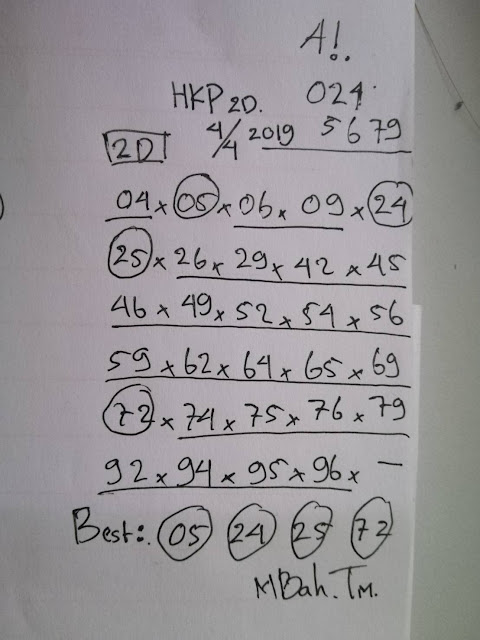 A!..
HKP 2D. 024.
4/4 2019 5679
2D
04 x 05 x 06 x 09 x 24
25 x 26 x 29 x 42 x 45
46 x 49 x 52 x 54 x 56
59 x 62 x 64 x 65 x 69
72 x 74 x 75 x 76 x 79
92 x 94 x 95 x 96 x —
Best:. 05 24 25 72
MBah. Tm.